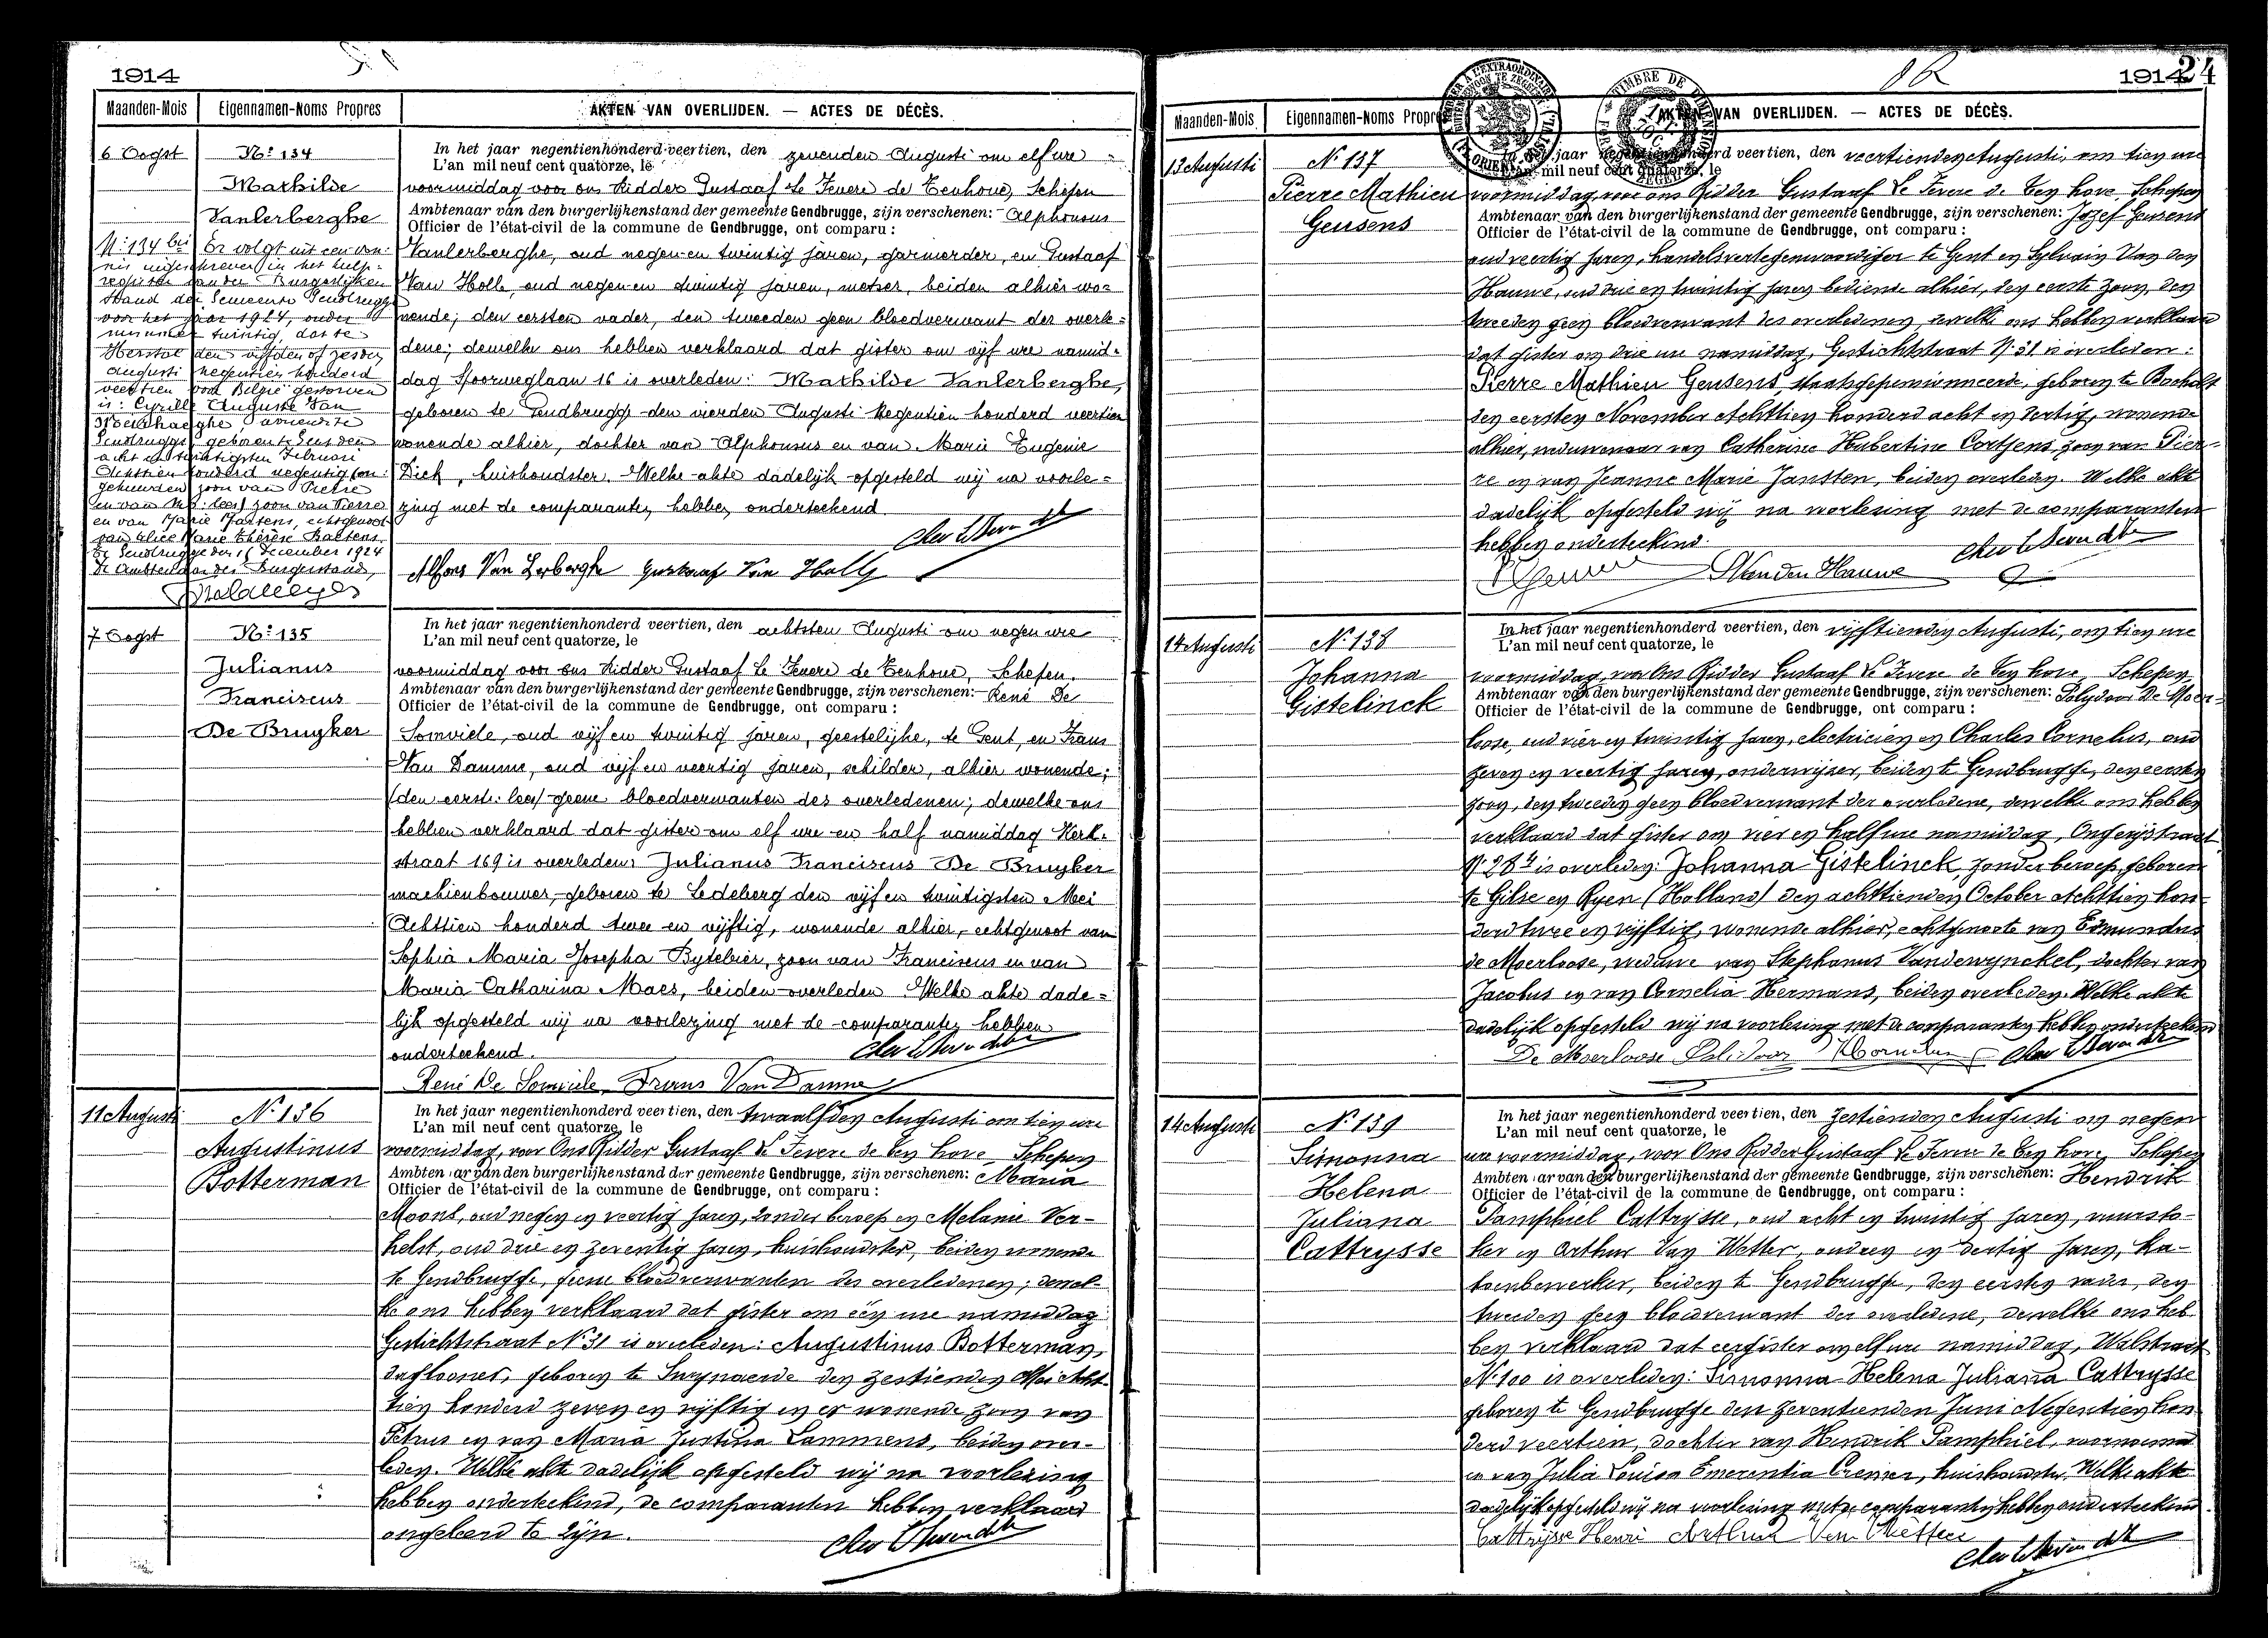 1914
Maanden-Mois Eigennamen-Noms Propres AKTEN VAN OVERLIJDEN. — ACTES DE DÉCÈS.
6 Oogst
Nº 134
Mathilde
Vanlerberghe
Nº 134 bis Er volgt uit een von-
nis ingeschreven in het hulp-
register van den Burgerlijken
Stand der Gemeente Gendbrugge
voor het jaar 1924, onder
nummer twintig, dat te
Herstal den vijfden of zesden
Augusti negentien honderd
veertien voor België gestorven
is: Cyrille Auguste Van
Gendbrugge, geboren te Eusden
acht en twintigsten Februari
Achttien honderd negentig
zoon van Pierre
en van (lees) zoon van Pierre
en van Marie Martens, echtgenoot
van Alice Marie Thérèse Baetens
Te Gendbrugge den 16 December 1924
De Ambtenaar des Burgerstands,
In het jaar negentienhonderd veertien, den zevenden Augusti om elf ure
L'an mil neuf cent quatorze, le
voormiddag voor ons Ridder Gustaaf Le Fevere de Tenhove, Schepen
Ambtenaar van den burgerlijkenstand der gemeente Gendbrugge, zijn verschenen: Alphonsus
Officier de l'état-civil de la commune de Gendbrugge, ont comparu :
Vanlerberghe, oud negen en twintig jaren, garnierder, en Gustaaf
Van Holle, oud negen en twintig jaren, metser, beiden alhier wo-
nende; den eersten vader, den tweeden geen bloedverwant der overle-
dene; dewelke ons hebben verklaard dat gister om vijf ure namid-
dag Spoorweglaan 16 is overleden: Mathilde Vanlerberghe,
geboren te Gendbrugge den vierden Augusti Negentien honderd veertien
wonende alhier, dochter van Alphonsus en van Marie Eugenie
Dick, huishoudster. Welke akte dadelijk opgesteld wij na voorle-
zing met de comparanten hebben onderteekend
Alfons Van Lerberghe Gustaaf Van Holle
7 Oogst
Nº 135
Julianus
Franciscus
De Bruyker
In het jaar negentienhonderd veertien, den achtsten Augusti om negen ure
L'an mil neuf cent quatorze, le
voormiddag voor ons Ridder Gustaaf Le Fevere de Tenhove, Schepen.
Ambtenaar van den burgerlijkenstand der gemeente Gendbrugge, zijn verschenen: René De
Officier de l'état-civil de la commune de Gendbrugge, ont comparu :
Somviele, oud vijf en twintig jaren, geestelijke, te Gent, en Frans
Van Damme, oud vijf en veertig jaren, schilder, alhier wonende;
(den eerst: lees) geene bloedverwanten des overledenen; dewelke ons
hebben verklaard dat gister om elf ure en half namiddag Kerk-
straat 169 is overleden: Julianus Franciscus De Bruyker
machienbouwer, geboren te Ledeberg den vijf en twintigsten Mei
Achttien honderd twee en vijftig, wonende alhier, echtgenoot van
Sophia Maria Josepha Bytebier, zoon van Franciscus en van
Maria Catharina Maes, beiden overleden Welke akte dade-
lijk opgesteld wij na voorlezing met de comparanten hebben
onderteekend.
René De Somviele Frans Van Damme
11 Augusti
Nº 136
Augustinus
Botterman
In het jaar negentienhonderd veertien, den twaalfden Augusti om tien ure
L'an mil neuf cent quatorze, le
voormiddag, voor Ons Ridder Gustaaf Le Fevere de ten hove, Schepen
Ambtenaar van den burgerlijkenstand der gemeente Gendbrugge, zijn verschenen: Maria
Officier de l'état-civil de la commune de Gendbrugge, ont comparu :
Moons, oud negen en veertig jaren, zonder beroep en Melanie Ver-
helst, oud drie en zeventig jaren, huishoudster, beiden wonende
te Gendbrugge, geene bloedverwanten des overledenen; dewel-
ke ons hebben verklaard dat gister om één ure namiddag
Gestichtstraat Nº 31 is overleden: Augustinus Botterman,
daglooner, geboren te Swynaerde den zestienden Mei Acht-
tien honderd zeven en vijftig en er wonende, zoon van
Petrus en van Maria Justina Lammens, beiden over-
leden. Welke akte dadelijk opgesteld wij na voorlezing
hebben onderteekend, de comparanten hebben verklaard
ongeleerd te zijn.
1914 24
Maanden-Mois Eigennamen-Noms Propres AKTEN VAN OVERLIJDEN. — ACTES DE DÉCÈS.
13 Augusti
Nº 137
Pierre Mathieu
Geusens
In het jaar negentienhonderd veertien, den veertienden Augusti, om tien ure
L'an mil neuf cent quatorze, le
voormiddag, voor ons Ridder Gustaaf Le Fevere de ten hove, Schepen
Ambtenaar van den burgerlijkenstand der gemeente Gendbrugge, zijn verschenen: Jozef Geusens
Officier de l'état-civil de la commune de Gendbrugge, ont comparu :
oud veertig jaren, handelsvertegenwoordiger te Gent en Sylvain Van den
Hauwe, oud drie en twintig jaren bediende alhier, den eerste zoon, den
tweeden geen bloedverwant des overledenen, dewelke ons hebben verklaard
dat gister om drie ure namiddag, Gestichtstraat Nº 31 is overleden:
Pierre Mathieu Geusens, staatsgepensionneerde, geboren te Bocholt
den eersten November Achttien honderd acht en dertig, wonende
alhier, weduwenaar van Catherine Hubertine Cortjens, zoon van Pier-
re en van Jeanne Marie Janssen, beiden overleden. Welke akte
dadelijk opgesteld wij na voorlezing met de comparanten
hebben onderteekend.
JGeusens SVanden Hauwe
14 Augusti
Nº 138
Johanna
Gistelinck
In het jaar negentienhonderd veertien, den vijftienden Augusti, om tien ure
L'an mil neuf cent quatorze, le
voormiddag, voor Ons Ridder Gustaaf Le Fevere de ten hove, Schepen
Ambtenaar van den burgerlijkenstand der gemeente Gendbrugge, zijn verschenen: Polydoor De Moer-
Officier de l'état-civil de la commune de Gendbrugge, ont comparu :
loose, oud vier en twintig jaren, electricien en Charles Cornelus, oud
zeven en veertig jaren, onderwijzer, beiden te Gendbrugge, den eersten
zoon, den tweeden geen bloedverwant der overledene, dewelke ons hebben
verklaard dat gister om vier en half ure namiddag, Ongerijstraat
Nº 28 is overleden: Johanna Gistelinck, zonder beroep, geboren
te Gilse en Ryen (Holland) den achttienden October Achttien hon-
derd twee en vijftig, wonende alhier, echtgenoote van Edmundus
de Moerloose, weduwe van Stephanus Vandewynckel, dochter van
Jacobus en van Cornelia Hermans, beiden overleden. Welke akte
dadelijk opgesteld wij na voorlezing met de comparanten hebben onderteekend
De Moerloose Polidoor
14 Augusti
Nº 139
Simonna
Helena
Juliana
Cattrysse
In het jaar negentienhonderd veertien, den zestienden Augusti om negen
L'an mil neuf cent quatorze, le
ure voormiddag, voor Ons Ridder Gustaaf Le Fevere de ten hove, Schepen
Ambtenaar van den burgerlijkenstand der gemeente Gendbrugge, zijn verschenen: Hendrik
Officier de l'état-civil de la commune de Gendbrugge, ont comparu :
Pamphiel Cattrysse, oud acht en twintig jaren, vuursto-
ker en Arthur Van Wetter, oud een en dertig jaren, ka-
toenbewerker, beiden te Gendbrugge, den eersten vader, den
tweeden geen bloedverwant der overledene, dewelke ons heb-
ben verklaard dat eergister om elf ure namiddag, Walstraat
Nº 100 is overleden: Simonna Helena Juliana Cattrysse
geboren te Gendbrugge den zeventienden Juni Negentien hon-
derd veertien, dochter van Hendrik Pamphiel, voornoemd
en van Julia Louisa Emerentia Cremer, huishoudster. Welke akte
dadelijk opgesteld wij na voorlezing met de comparanten hebben onderteekend.
Cattrysse Henri Arthur Van Wetter